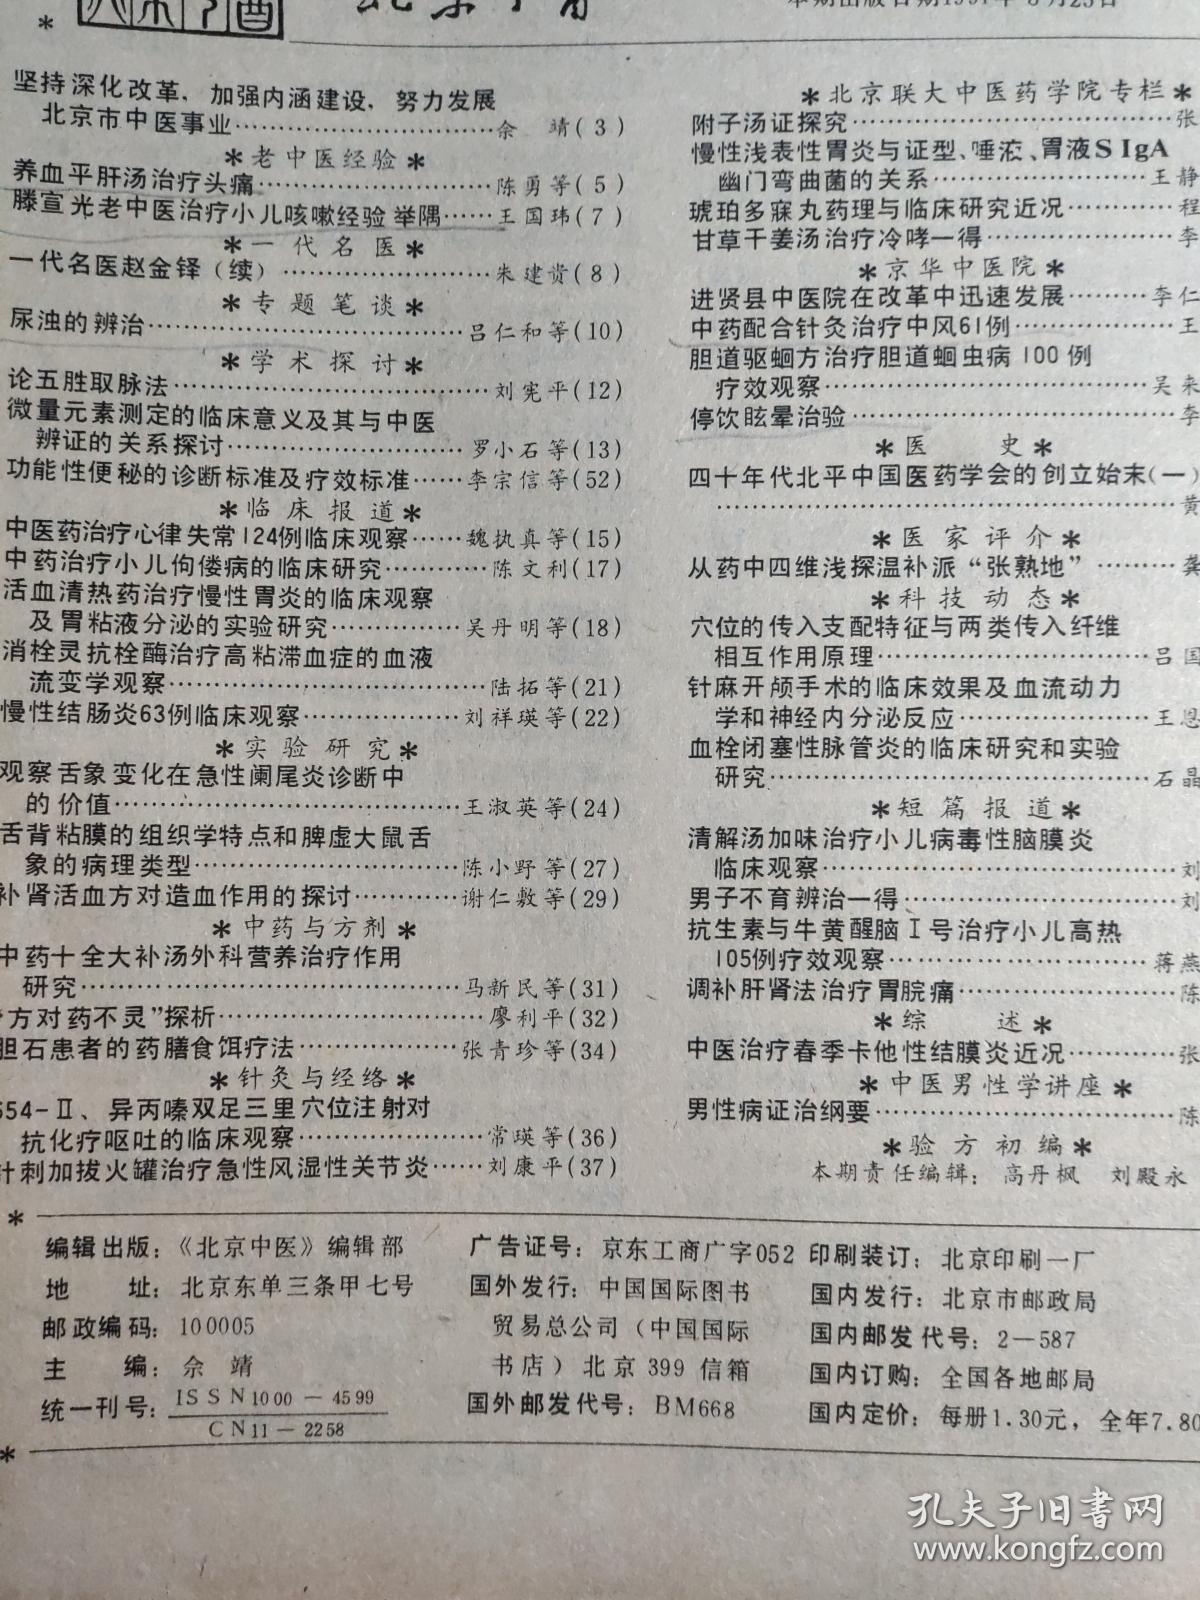 坚持深化改革，加强内涵建设，努力发展
北京市中医事业……………………………佘　靖(3)
*老中医经验*
养血平肝汤治疗头痛……………………陈勇等(5)
滕宣光老中医治疗小儿咳嗽经验举隅……王国玮(7)
*一代名医*
一代名医赵金铎（续）…………………朱建贵(8)
*专题笔谈*
尿浊的辨治……………………………吕仁和等(10)
*学术探讨*
论五胜取脉法…………………………刘宪平(12)
微量元素测定的临床意义及其与中医
辨证的关系探讨……………………罗小石等(13)
功能性便秘的诊断标准及疗效标准……李宗信等(52)
*临床报道*
中医药治疗心律失常124例临床观察……魏执真等(15)
中药治疗小儿佝偻病的临床研究…………陈文利(17)
活血清热药治疗慢性胃炎的临床观察
及胃粘液分泌的实验研究……………吴丹明等(18)
消栓灵抗栓酶治疗高粘滞血症的血液
流变学观察……………………………陆拓等(21)
慢性结肠炎63例临床观察………………刘祥瑛等(22)
*实验研究*
观察舌象变化在急性阑尾炎诊断中
的价值…………………………………王淑英等(24)
舌背粘膜的组织学特点和脾虚大鼠舌
象的病理类型…………………………陈小野等(27)
补肾活血方对造血作用的探讨…………谢仁敷等(29)
*中药与方剂*
中药十全大补汤外科营养治疗作用
研究……………………………………马新民等(31)
方对药不灵”探析………………………廖利平(32)
胆石患者的药膳食饵疗法………………张青珍等(34)
*针灸与经络*
654-Ⅱ、异丙嗪双足三里穴位注射对
抗化疗呕吐的临床观察………………常瑛等(36)
针刺加拔火罐治疗急性风湿性关节炎……刘康平(37)
*北京联大中医药学院专栏*
附子汤证探究……………………………张
慢性浅表性胃炎与证型、唾液、胃液SIgA
幽门弯曲菌的关系……………………王静
琥珀多寐丸药理与临床研究近况…………程
甘草干姜汤治疗冷哮一得………………李
*京华中医院*
进贤县中医院在改革中迅速发展………李仁
中药配合针灸治疗中风61例………………王
胆道驱蛔方治疗胆道蛔虫病100例
疗效观察………………………………吴来
停饮眩晕治验……………………………李
*医　　史*
四十年代北平中国医药学会的创立始末(一)
……………………………………………黄
*医家评介*
从药中四维浅探温补派“张熟地”………龚
*科技动态*
穴位的传入支配特征与两类传入纤维
相互作用原理…………………………吕国
针麻开颅手术的临床效果及血流动力
学和神经内分泌反应…………………王恩
血栓闭塞性脉管炎的临床研究和实验
研究……………………………………石晶
*短篇报道*
清解汤加味治疗小儿病毒性脑膜炎
临床观察………………………………刘
男子不育辨治一得………………………刘
抗生素与牛黄醒脑Ⅰ号治疗小儿高热
105例疗效观察…………………………蒋燕
调补肝肾法治疗胃脘痛…………………陈
*综　　述*
中医治疗春季卡他性结膜炎近况…………张
*中医男性学讲座*
男性病证治纲要…………………………陈
*验方初编*
本期责任编辑：高丹枫　刘殿永
编辑出版：《北京中医》编辑部
地　　址：北京东单三条甲七号
邮政编码：100005
主　　编：佘　靖
统一刊号：ISSN1000－4599
CN11－2258
广告证号：京东工商广字052
国外发行：中国国际图书
贸易总公司（中国国际
书店）北京399信箱
国外邮发代号：BM668
印刷装订：北京印刷一厂
国内发行：北京市邮政局
国内邮发代号：2—587
国内订购：全国各地邮局
国内定价：每册1.30元，全年7.80
孔夫子旧书网
www.kongfz.com